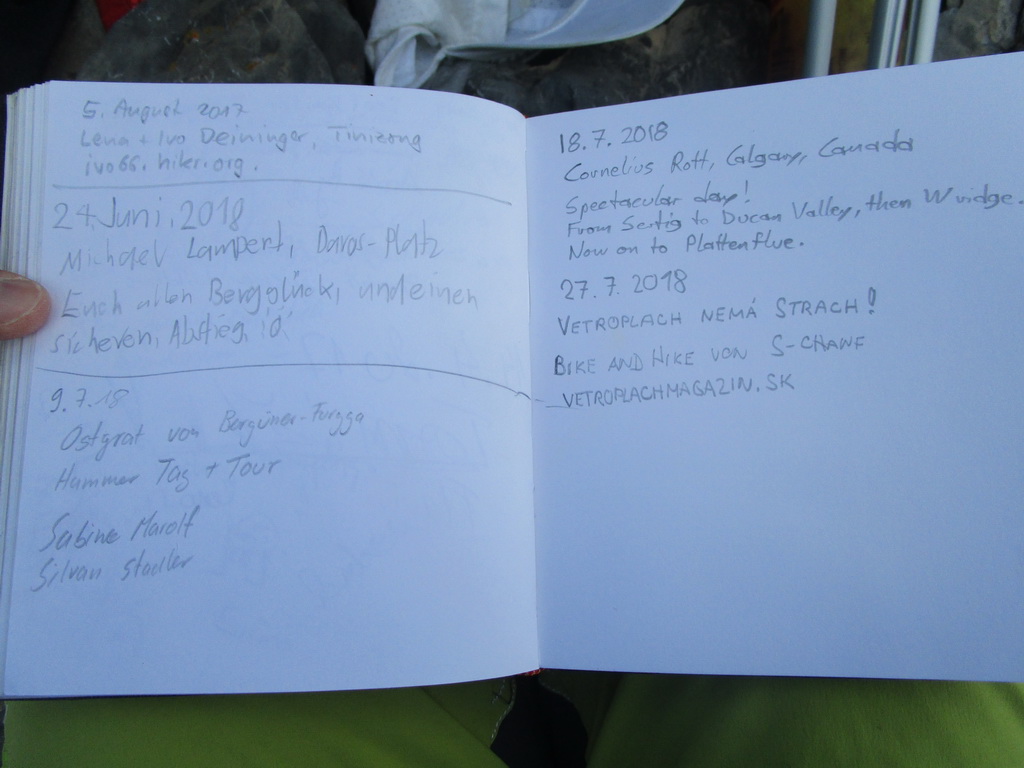 5. August 2017
Lena + Ivo Deininger, Tinizong
ivo66.hikr.org.
24. Juni, 2018
Michael Lampert, Davos-Platz
Euch allen Bergglück, und einen
sicheren, Abstieg!
9.7.18
Ostgrat von Bergüner-Furgga
Hammer Tag + Tour
Sabine Marolf
Silvan Stadler
18.7.2018
Cornelius Rott, Calgary, Canada
Spectacular day!
From Sertig to Ducan Valley, then W ridge.
Now on to Plattenflue.
27.7.2018
VETROPLACH NEMÁ STRACH!
BIKE AND HIKE VON S-CHANF
VETROPLACHMAGAZIN.SK